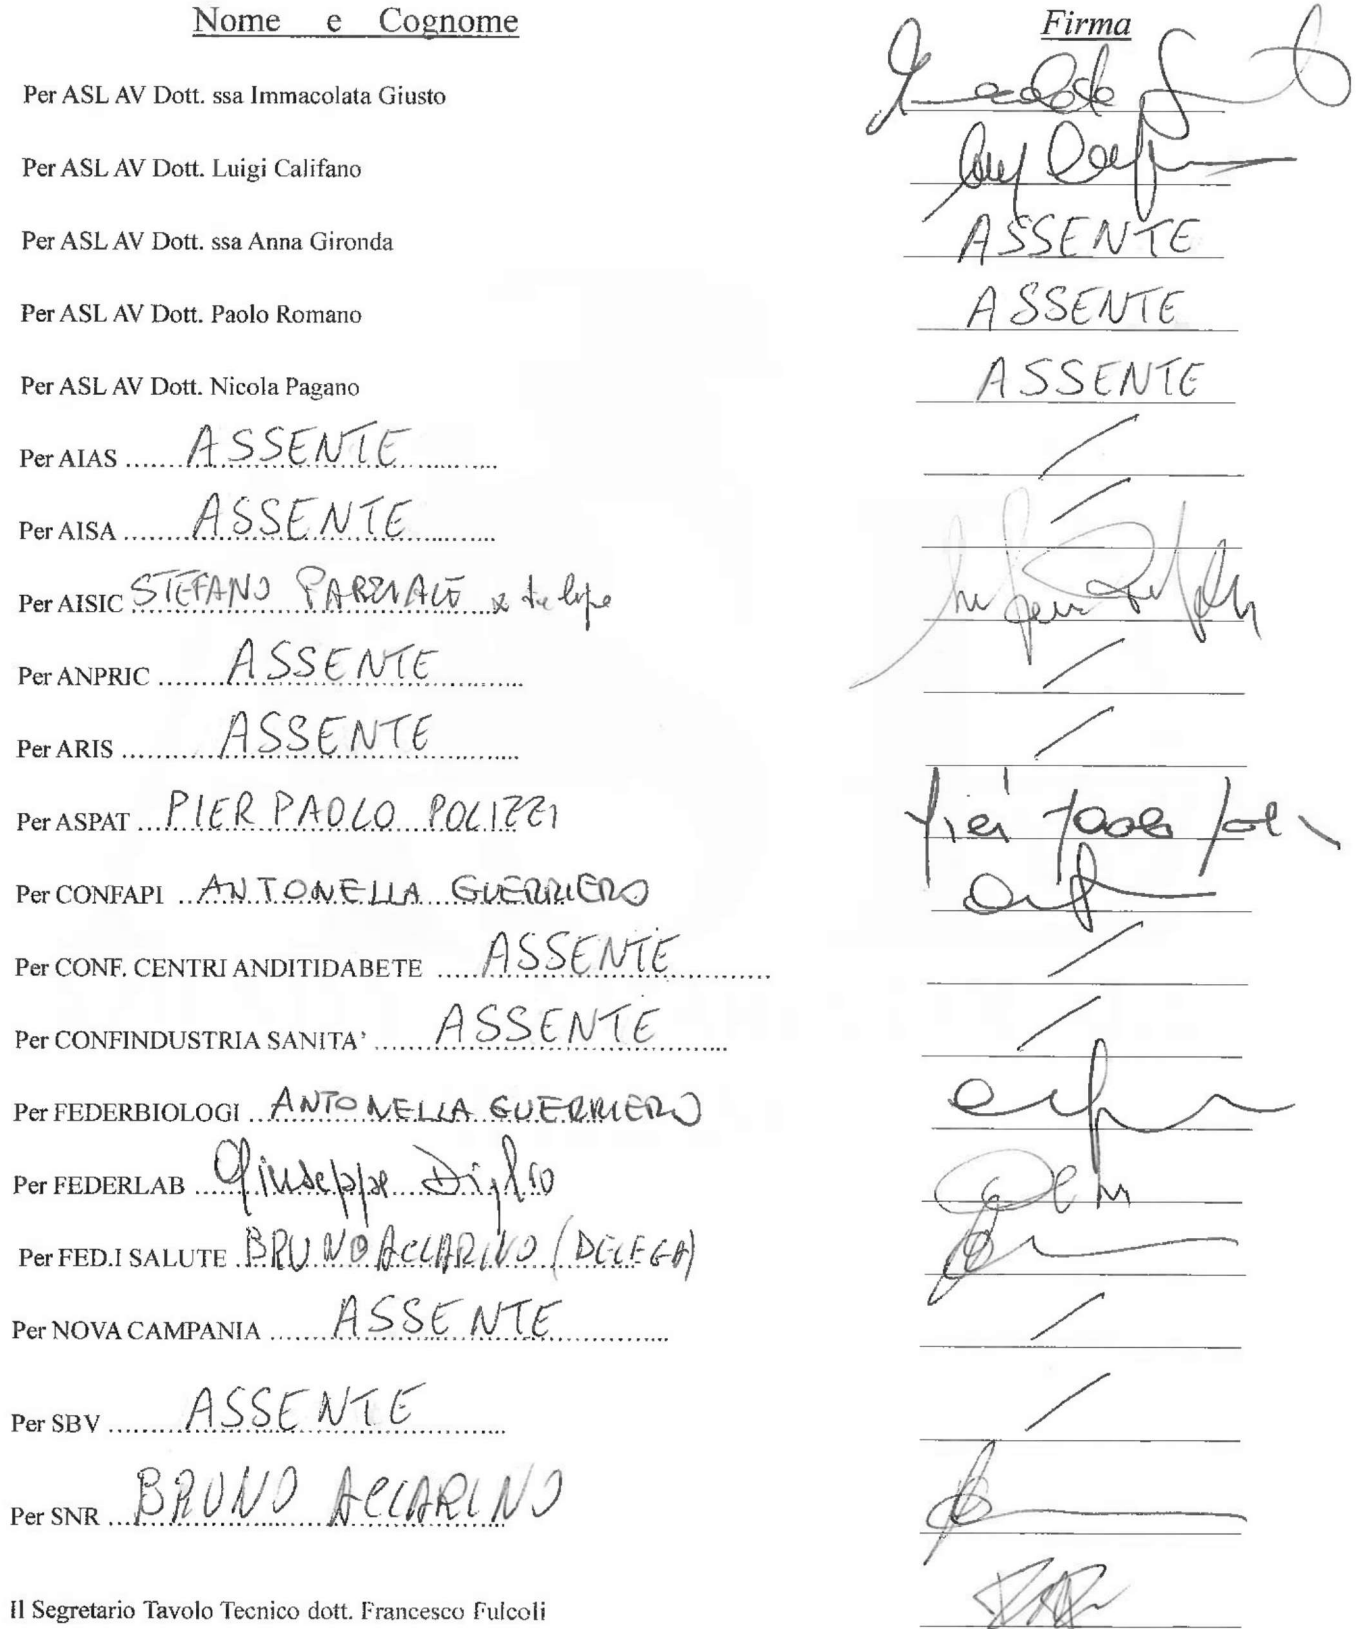 Nome e Cognome Firma
Per ASL AV Dott. ssa Immacolata Giusto
Per ASL AV Dott. Luigi Califano
Per ASL AV Dott. ssa Anna Gironda ASSENTE
Per ASL AV Dott. Paolo Romano ASSENTE
Per ASL AV Dott. Nicola Pagano ASSENTE
Per AIAS ...... ASSENTE ...........
Per AISA ...... ASSENTE ...........
Per AISIC STEFANO
Per ANPRIC ........ ASSENTE ...........
Per ARIS ......... ASSENTE ...........
Per ASPAT ... PIER PAOLO POLIZZI Pier Paolo
Per CONFAPI ... ANTONELLA GUERRIERO
Per CONF. CENTRI ANDITIDABETE ..... ASSENTE ...........
Per CONFINDUSTRIA SANITA' ...... ASSENTE ...........
Per FEDERBIOLOGI ... ANTONELLA GUERRIERO
Per FEDERLAB ... Giuseppe Diglio
Per FED.I SALUTE . BRUNO ACCARINO (DELEGA)
Per NOVA CAMPANIA ...... ASSENTE ...........
Per SBV ......... ASSENTE ...........
Per SNR ... BRUNO ACCARINO
Il Segretario Tavolo Tecnico dott. Francesco Fulcoli